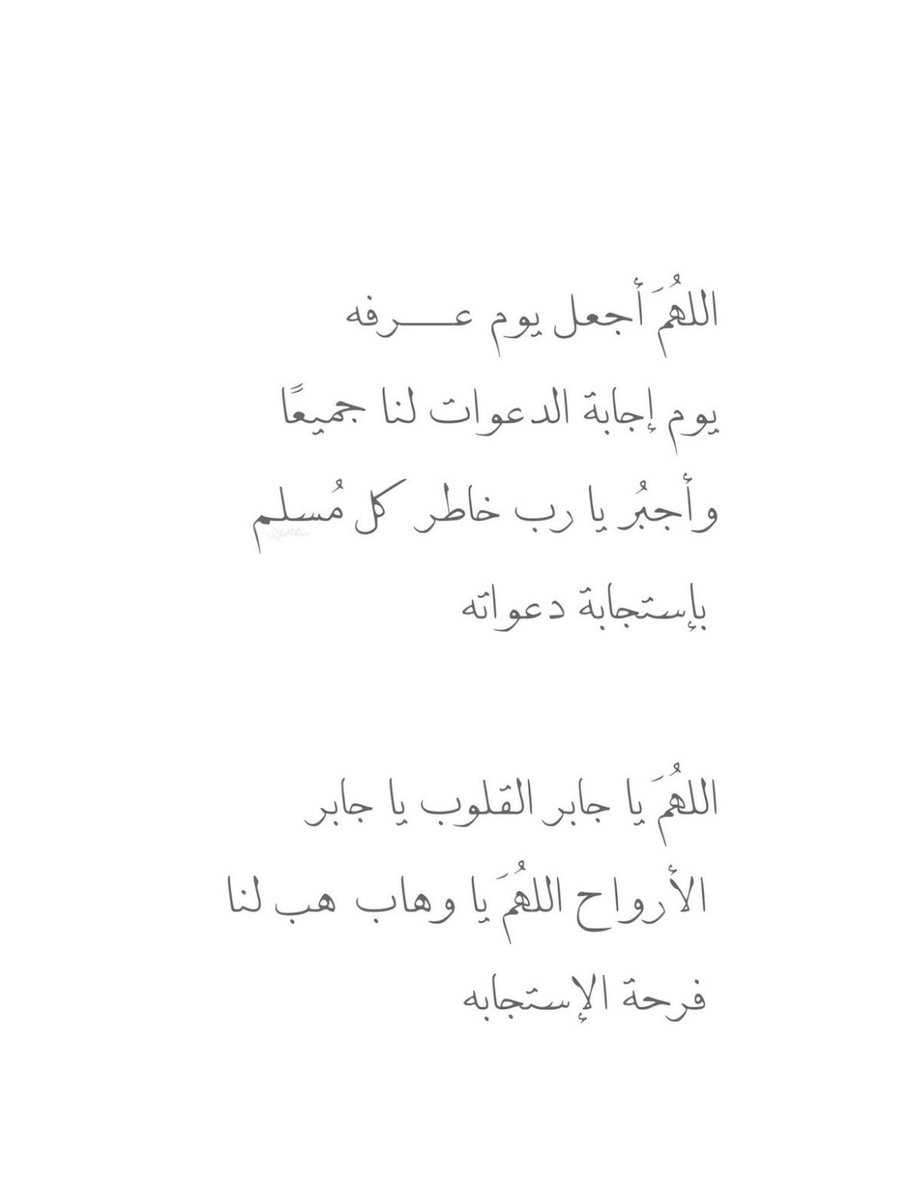 اللهُمَ أجعل يوم عـــرفه
يوم إجابة الدعوات لنا جميعًا
وأجبُر يا رب خاطر كل مُسلم
بإستجابة دعواته
اللهُمَ يا جابر القلوب يا جابر
الأرواح اللهُمَ يا وهاب هب لنا
فرحة الإستجابه